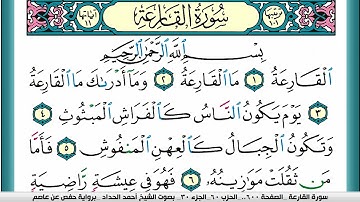 ترتيبها ١٠١ سُورَةُ القَارِعَةِ آياتها ١١
بِسْمِ اللَّهِ الرَّحْمَٰنِ الرَّحِيمِ
ٱلْقَارِعَةُ ١ مَا ٱلْقَارِعَةُ ٢ وَمَآ أَدْرَىٰكَ مَا ٱلْقَارِعَةُ
٣ يَوْمَ يَكُونُ ٱلنَّاسُ كَٱلْفَرَاشِ ٱلْمَبْثُوثِ ٤
وَتَكُونُ ٱلْجِبَالُ كَٱلْعِهْنِ ٱلْمَنفُوشِ ٥ فَأَمَّا
مَن ثَقُلَتْ مَوَٰزِينُهُۥ ٦ فَهُوَ فِى عِيشَةٍ رَّاضِيَةٍ
سورة القارعة_ الصفحة ٦٠٠_ الحزب ٦٠_ الجزء ٣٠_ بصوت الشيخ أحمد الحداد _برواية حفص عن عاصم